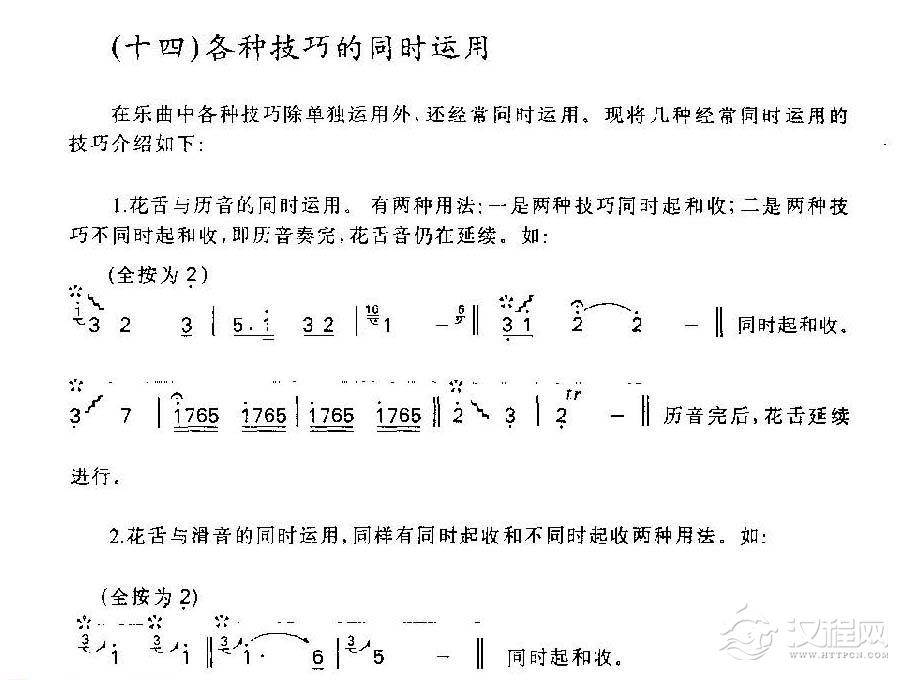 (十四)各种技巧的同时运用
在乐曲中各种技巧除单独运用外,还经常同时运用。现将几种经常同时运用的
技巧介绍如下:
1.花舌与历音的同时运用。有两种用法:一是两种技巧同时起和收;二是两种技
巧不同时起和收,即历音奏完,花舌音仍在延续。如:
(全按为2)
3 2 3 | 5·i 3 2 | 1 - ‖ 3 1 2 2 - ‖ 同时起和收。
3 7 | 1765 1765 | 1765 1765 ‖ 2 3 | 2 tr - ‖ 历音完后,花舌延续
进行。
2.花舌与滑音的同时运用,同样有同时起收和不同时起收两种用法。如:
(全按为2)
3 1 3 1 ‖ 3 1· 6 | 3 5 - ‖ 同时起和收。
汉程网
WWW.HTTPCN.COM